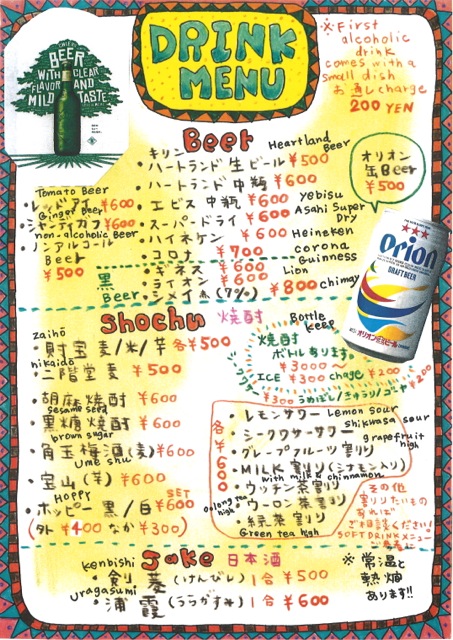 DRINK
MENU
BEER
WITH CLEAR
FLAVOR AND
MILD TASTE
※ First
alcoholic
drink
comes with a
small dish
お通し charge
200 YEN
Beer
キリン Heartland Beer
ハートランド 生ビール ¥500
ハートランド 中瓶 ¥600
エビス 中瓶 ¥600 Yebisu
スーパードライ ¥600 Asahi Super Dry
ハイネケン ¥600 Heineken
コロナ ¥700 corona
オリオン
缶Beer
¥500
Orion
DRAFT BEER
オリオン生ビール
Tomato Beer
レッドアイ ¥600
Ginger Beer
シャンディガフ ¥600
Non-alcoholic Beer
ノンアルコール
Beer
¥500
黒
Beer
ギネス ¥600 Guinness
ライオン ¥600 Lion
シメイ 黒 (7%) ¥800 chimay
Shochu 焼酎
zaihō
財宝 麦/米/芋 各¥500
nikaidō
二階堂 麦 ¥500
胡麻焼酎 ¥600
sesame seed
黒糖焼酎 ¥600
brown sugar
角玉梅酒(麦) ¥600
Ume shu
宝山 (芋) ¥600
HOPPY SET
ホッピー 黒/白 ¥600
(外 ¥400 なか ¥300)
Bottle
keep
焼酎
ボトルあります。
¥3000~
ICE ¥300 chage ¥200
¥300 うめぼし/きゅうり/ ¥200
各¥600
レモンサワー Lemon sour
シークワサーサワー shikwasa sour
グレープフルーツ割り grapefruit high
MILK 割り (シナモン入り)
with milk & chinnamon
ウッチン茶割り
oolong tea high
ウーロン茶割り
緑茶割り
Green tea high
その他
割りたいもの
あれば
ご相談ください!
SOFT DRINKメニュー
ご参考に
Sake 日本酒
kenbishi
剣菱 (けんびし) 1合 ¥500
Uragasumi
浦霞 (うらがすみ) 1合 ¥600
※ 常温と
熱燗
あります!!